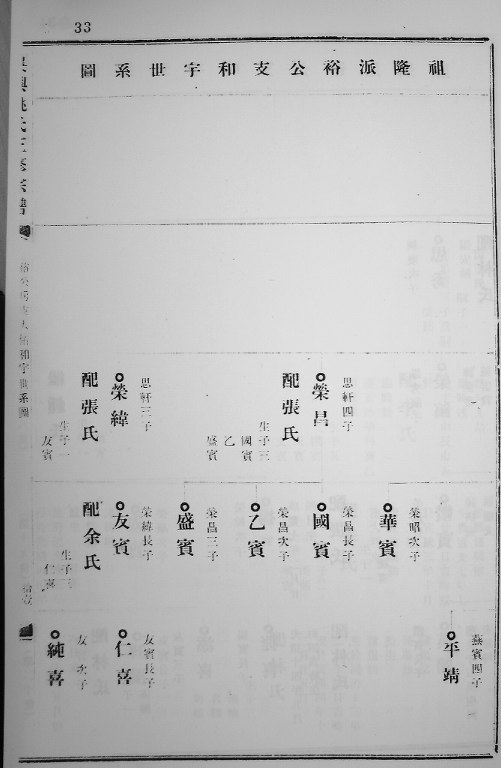 33
祖隆派裕公支和宇世系圖
平靖
燕賓四子
華賓
榮昭次子
榮昌
思軒四子
配張氏
生子三
國賓
乙
盛賓
國賓
榮昌長子
乙賓
榮昌次子
盛賓
榮昌三子
榮緯
思軒三子
配張氏
生子一
友賓
友賓
榮緯長子
配余氏
生子三
仁喜
仁喜
友賓長子
純喜
友 次子